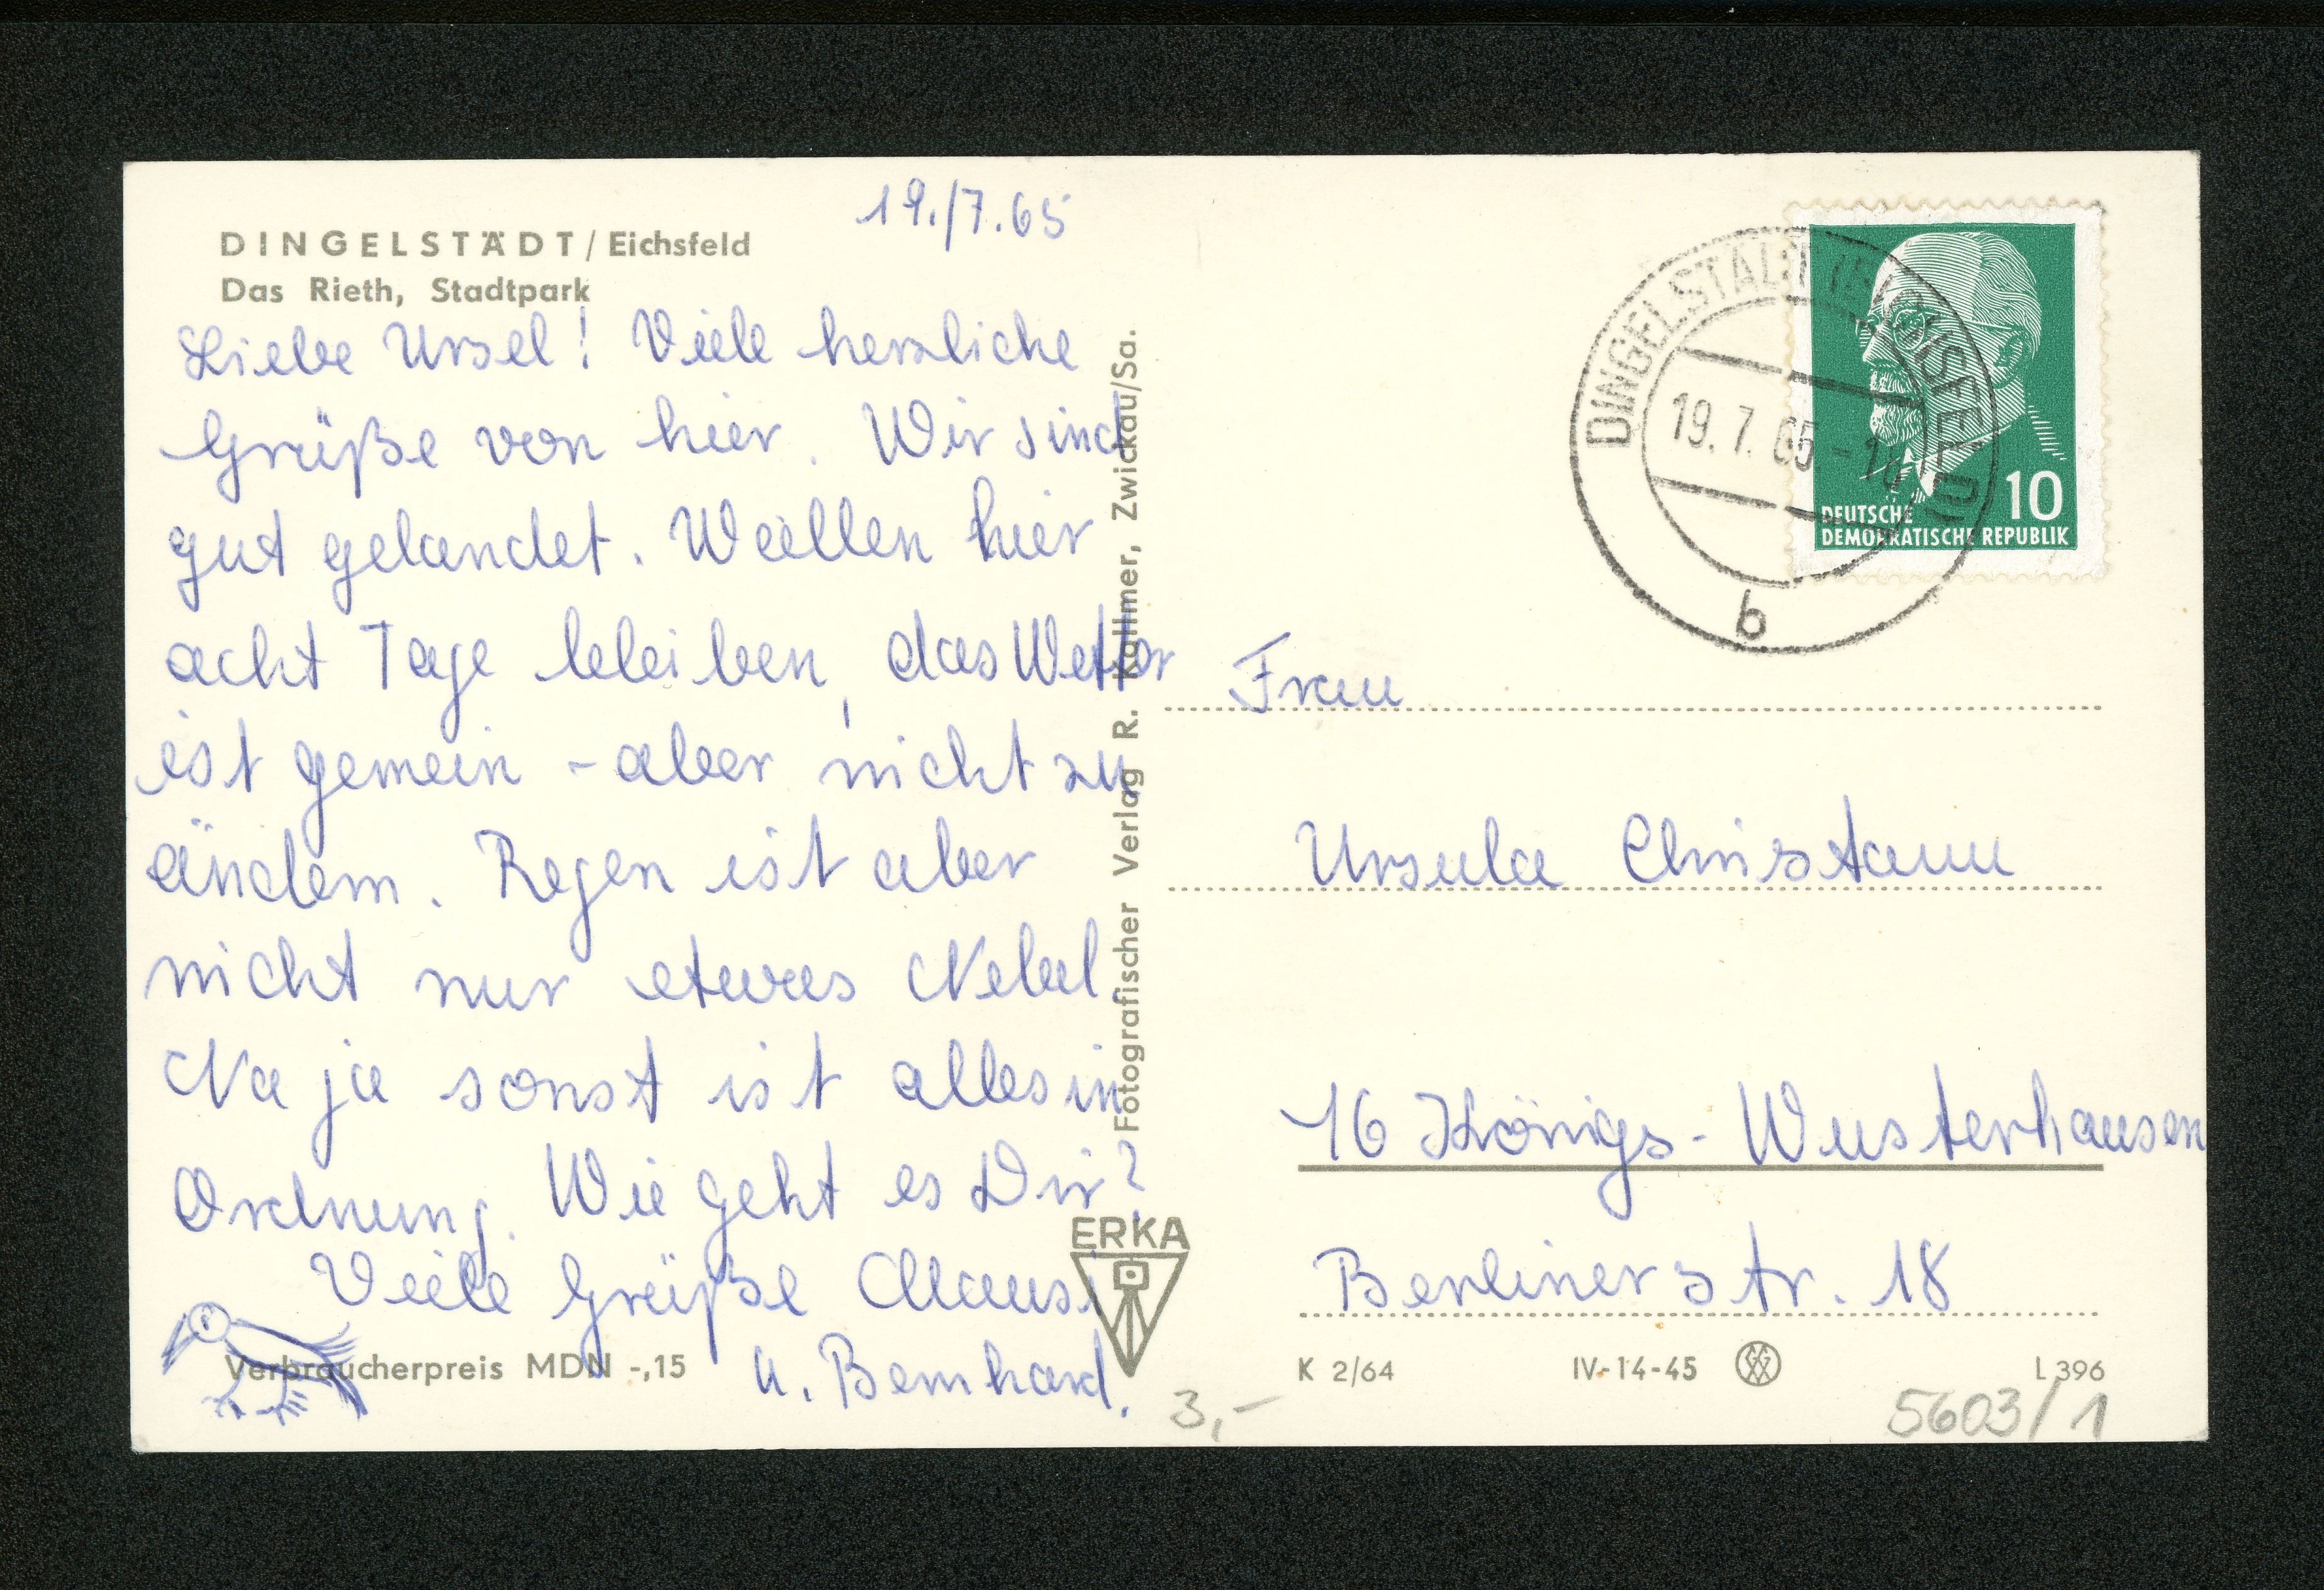 19./7.65
DINGELSTÄDT/Eichsfeld
Das Rieth, Stadtpark
Liebe Ursel! Viele herzliche
Grüße von hier. Wir sind
gut gelandet. Wollen hier
acht Tage bleiben, das Wetter
ist gemein - aber nicht zu
ändern. Regen ist aber
nicht nur etwas Nebel.
Na ja sonst ist alles in
Ordnung. Wie geht es Dir?
Viele Grüße Mausi
u. Bernhard.
Verbraucherpreis MDN -,15
Fotografischer Verlag R. Kallmer, Zwickau/Sa.
ERKA
DINGELSTÄDT (EICHSFELD)
19.7.65-16
b
10
DEUTSCHE
DEMOKRATISCHE REPUBLIK
Frau
Ursula
16 Königs-Wusterhausen
Berliner str. 18
K 2/64 IV-14-45 L 396
3,- 5603/1